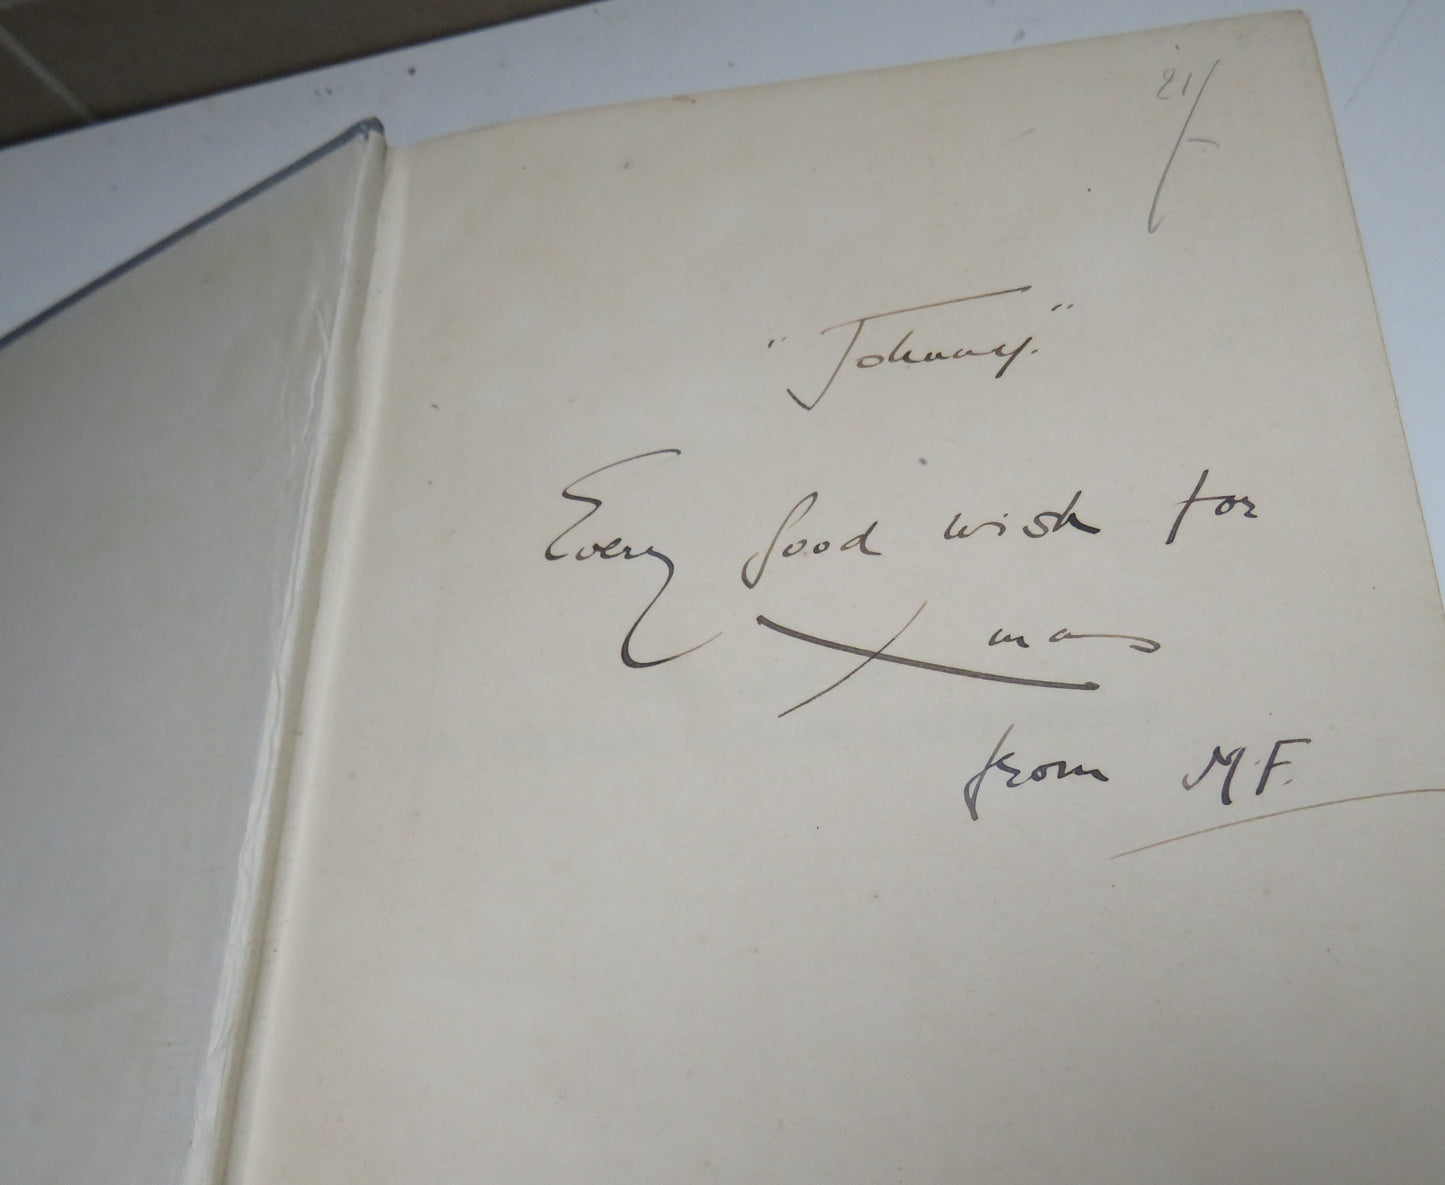 21/-
"Johnny."
Every good wish for
Xmas
from M.F.